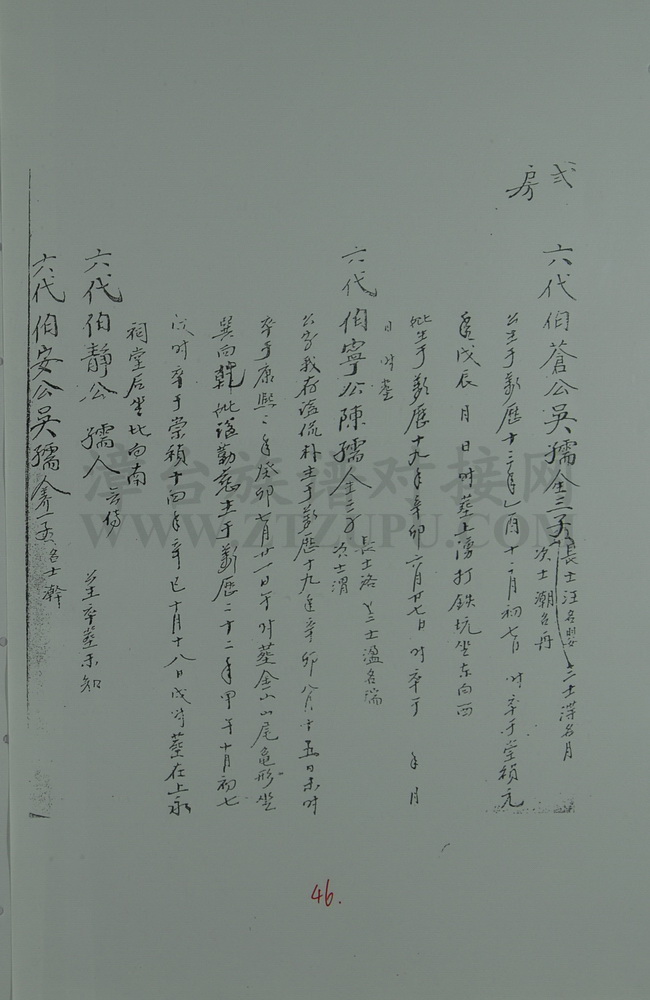 弍房
六代伯蒼公吳孺人生三子長士汪名 三士澤名月
次士潮名丹
公生于萬歷十三年乙酉十二月初七日 时卒于崇禎元
年戊辰 月 日时葬上湧打鉄坑坐东向西
妣生于萬歷十九年辛卯 月廿七日 时卒于 年 月
日 时葬
六代伯寧公陳孺人生三子 長士洛 三士溫名瑞
次士渭
公字我存諡侃朴生于萬歷十九年辛卯八月十五日未时
卒于康熙二年癸卯七月廿一日午时葬金山山尾龜形坐
巽向乾妣諡勤慈生于萬歷二十二年甲午十月初七
戌时卒于崇禎十四年辛巳十月十八日戌时葬在上永
祠堂后坐北向南
六代伯靜公 孺人 云傳 公生卒葬未知
六代伯安公吳孺人 一子名士幹
潭台族譜对接网
WWW.ZTZUPU.COM
46.